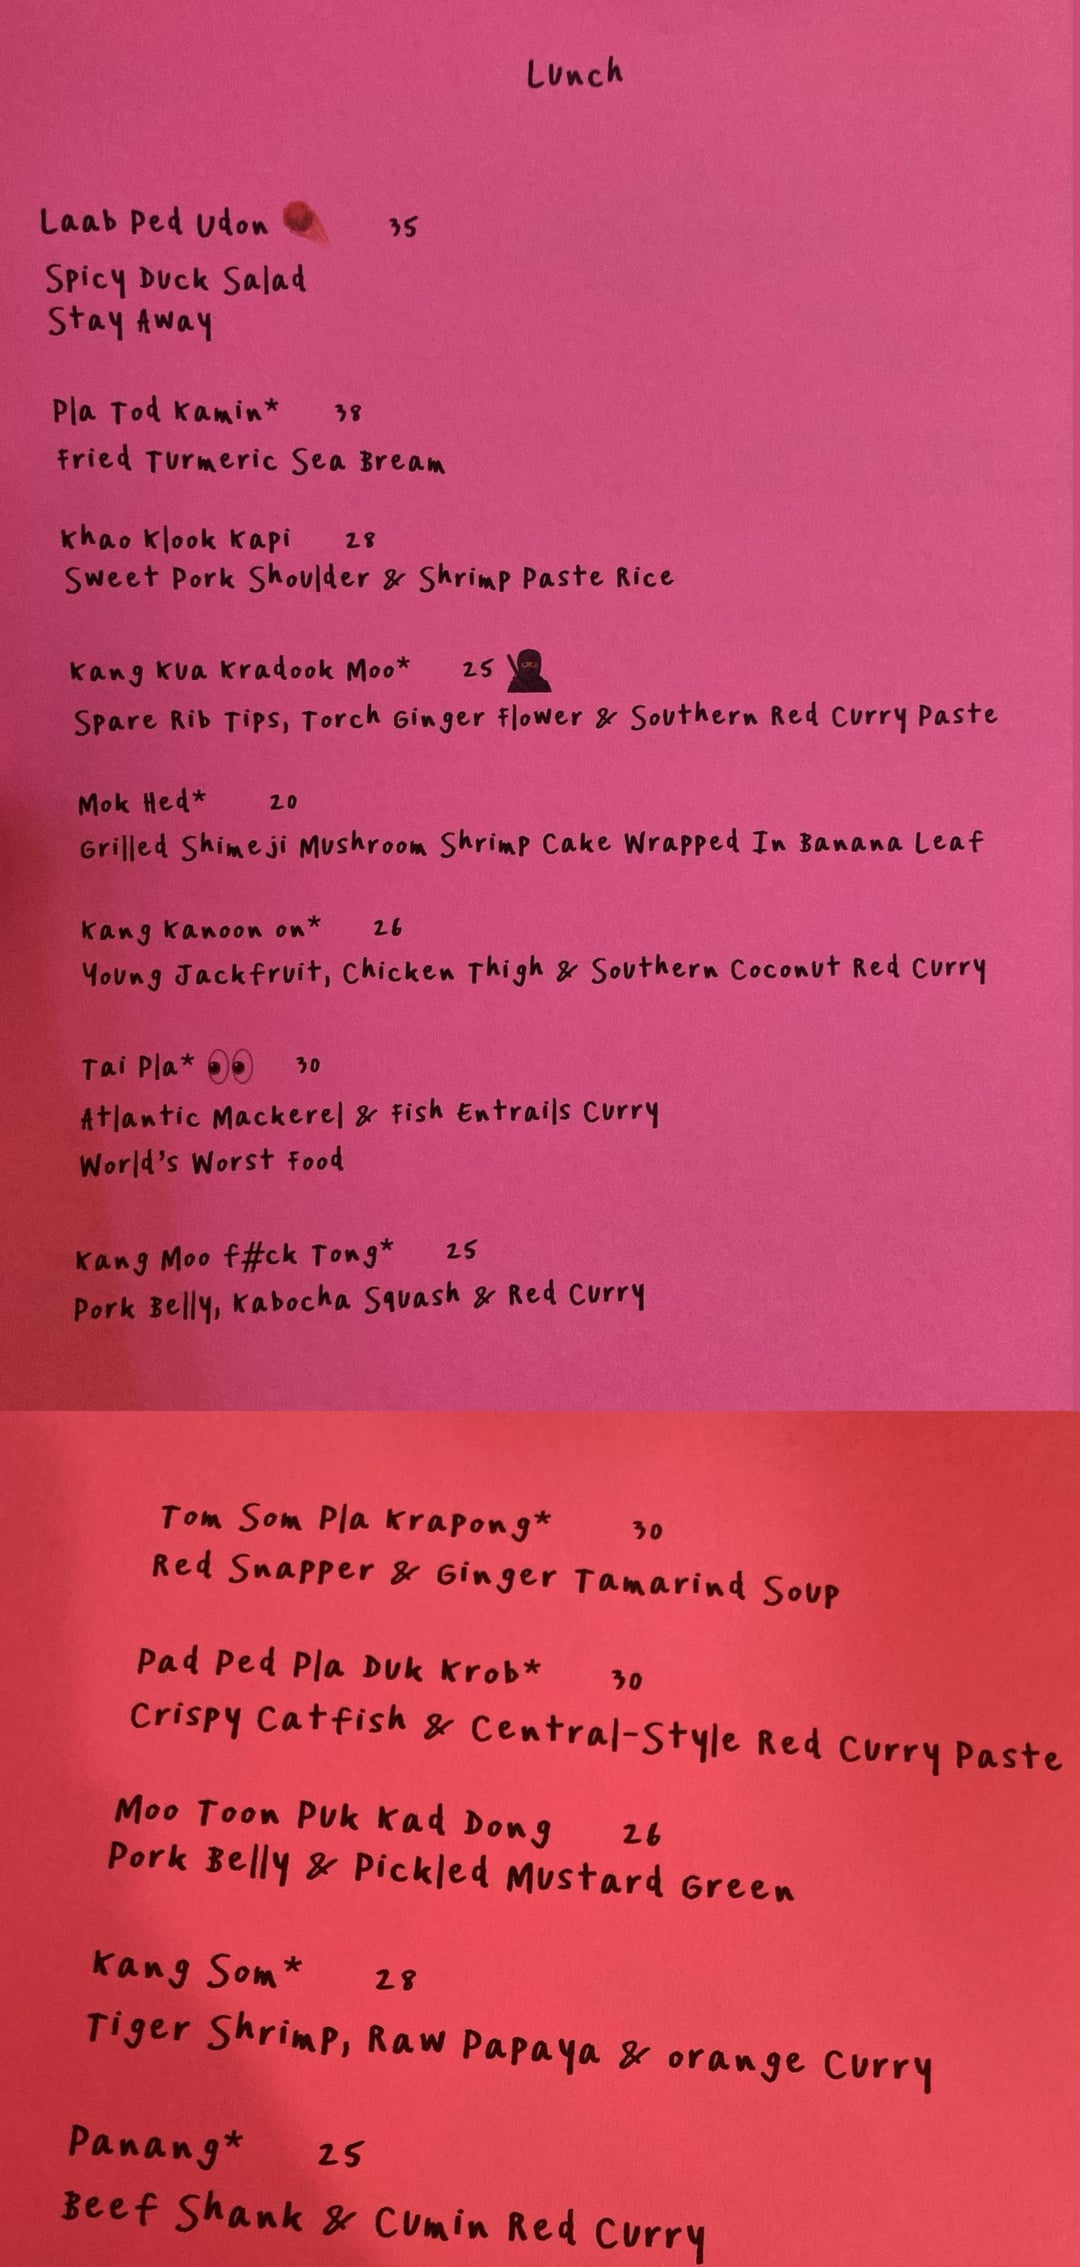 Lunch
Laab Ped Udon 35
Spicy Duck Salad
Stay Away
Pla Tod Kamin* 38
Fried Turmeric Sea Bream
Khao Klook Kapi 28
Sweet Pork Shoulder & Shrimp Paste Rice
Kang Kua Kradook Moo* 25
Spare Rib Tips, Torch Ginger Flower & Southern Red Curry Paste
Mok Hed* 20
Grilled Shimeji Mushroom Shrimp Cake Wrapped In Banana Leaf
Kang Kanoon on* 26
Young Jackfruit, Chicken Thigh & Southern Coconut Red Curry
Tai Pla* 👀 30
Atlantic Mackerel & Fish Entrails Curry
World's Worst Food
Kang Moo f#ck Tong* 25
Pork Belly, Kabocha Squash & Red Curry
Tom Som Pla Krapong* 30
Red Snapper & Ginger Tamarind Soup
Pad Ped Pla Duk Krob* 30
Crispy Catfish & Central-Style Red Curry Paste
Moo Toon Puk Kad Dong 26
Pork Belly & Pickled Mustard Green
Kang Som* 28
Tiger Shrimp, Raw Papaya & Orange Curry
Panang* 25
Beef Shank & Cumin Red Curry